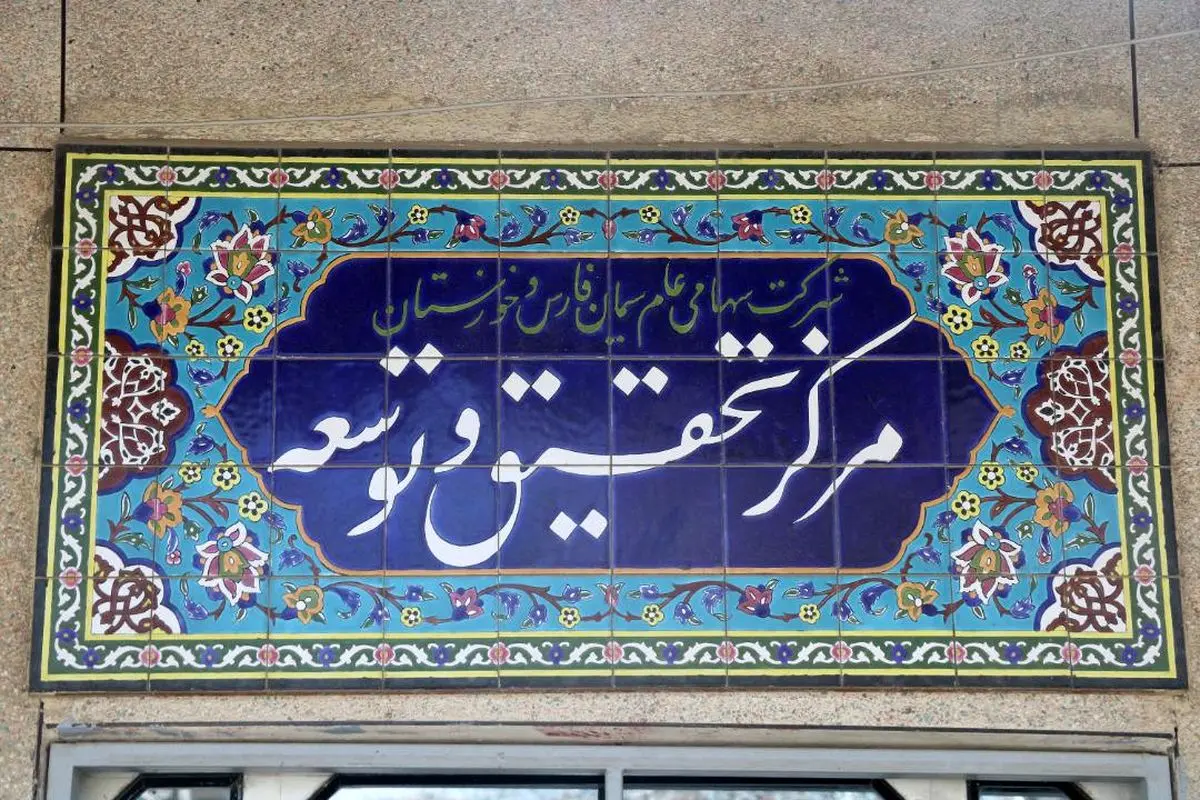 شرکت سهامی عام سیمان فارس و خوزستان
مرکز تحقیق و توسعه